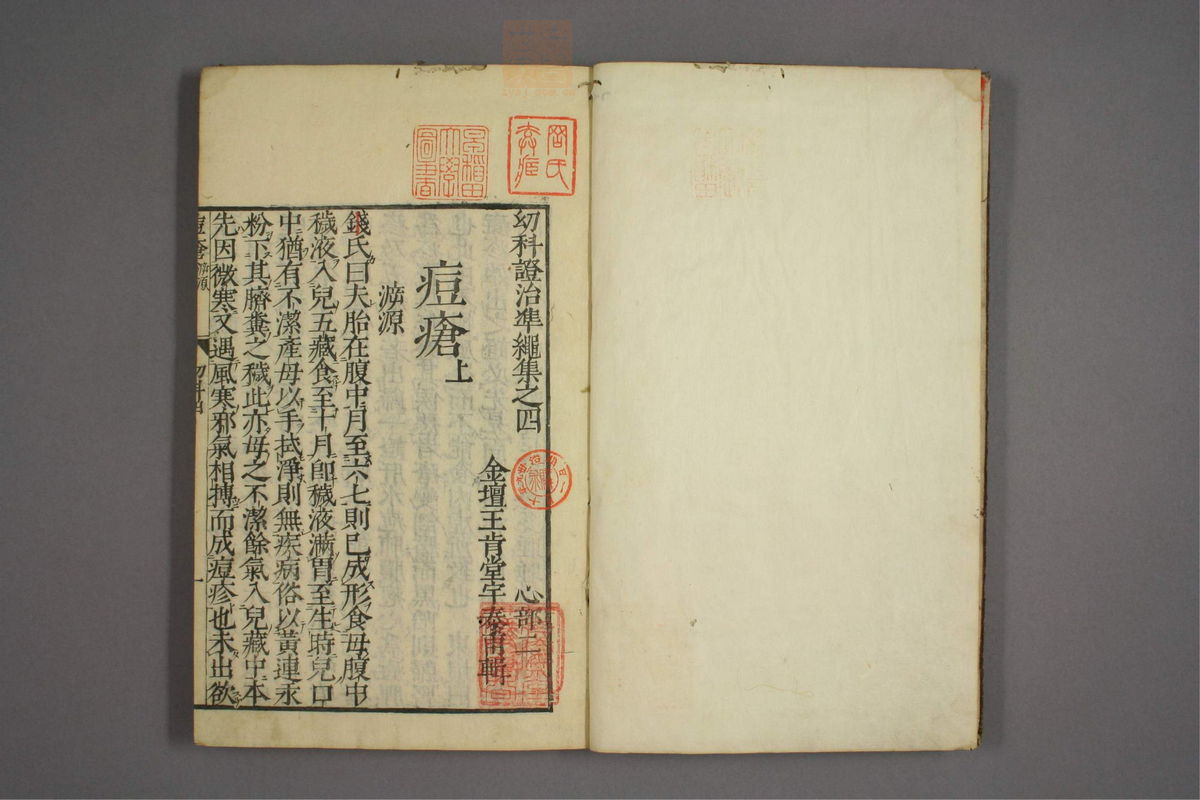 幼科證治準繩集之四
心部二
金壇王肯堂宇泰甫輯
痘瘡上
㴑源
錢氏曰夫胎在腹中月至六七則已成形食母腹中
穢液入兒五藏食至十月卽穢液滿胃至生時兒口
中猶有不潔產母以手拭淨則無疾病俗以黃連汞
粉下其臍糞之穢此亦母之不潔餘氣入兒藏中本
先因微寒又遇風寒邪氣相搏而成痘疹也未出欲
早稲田大學圖書